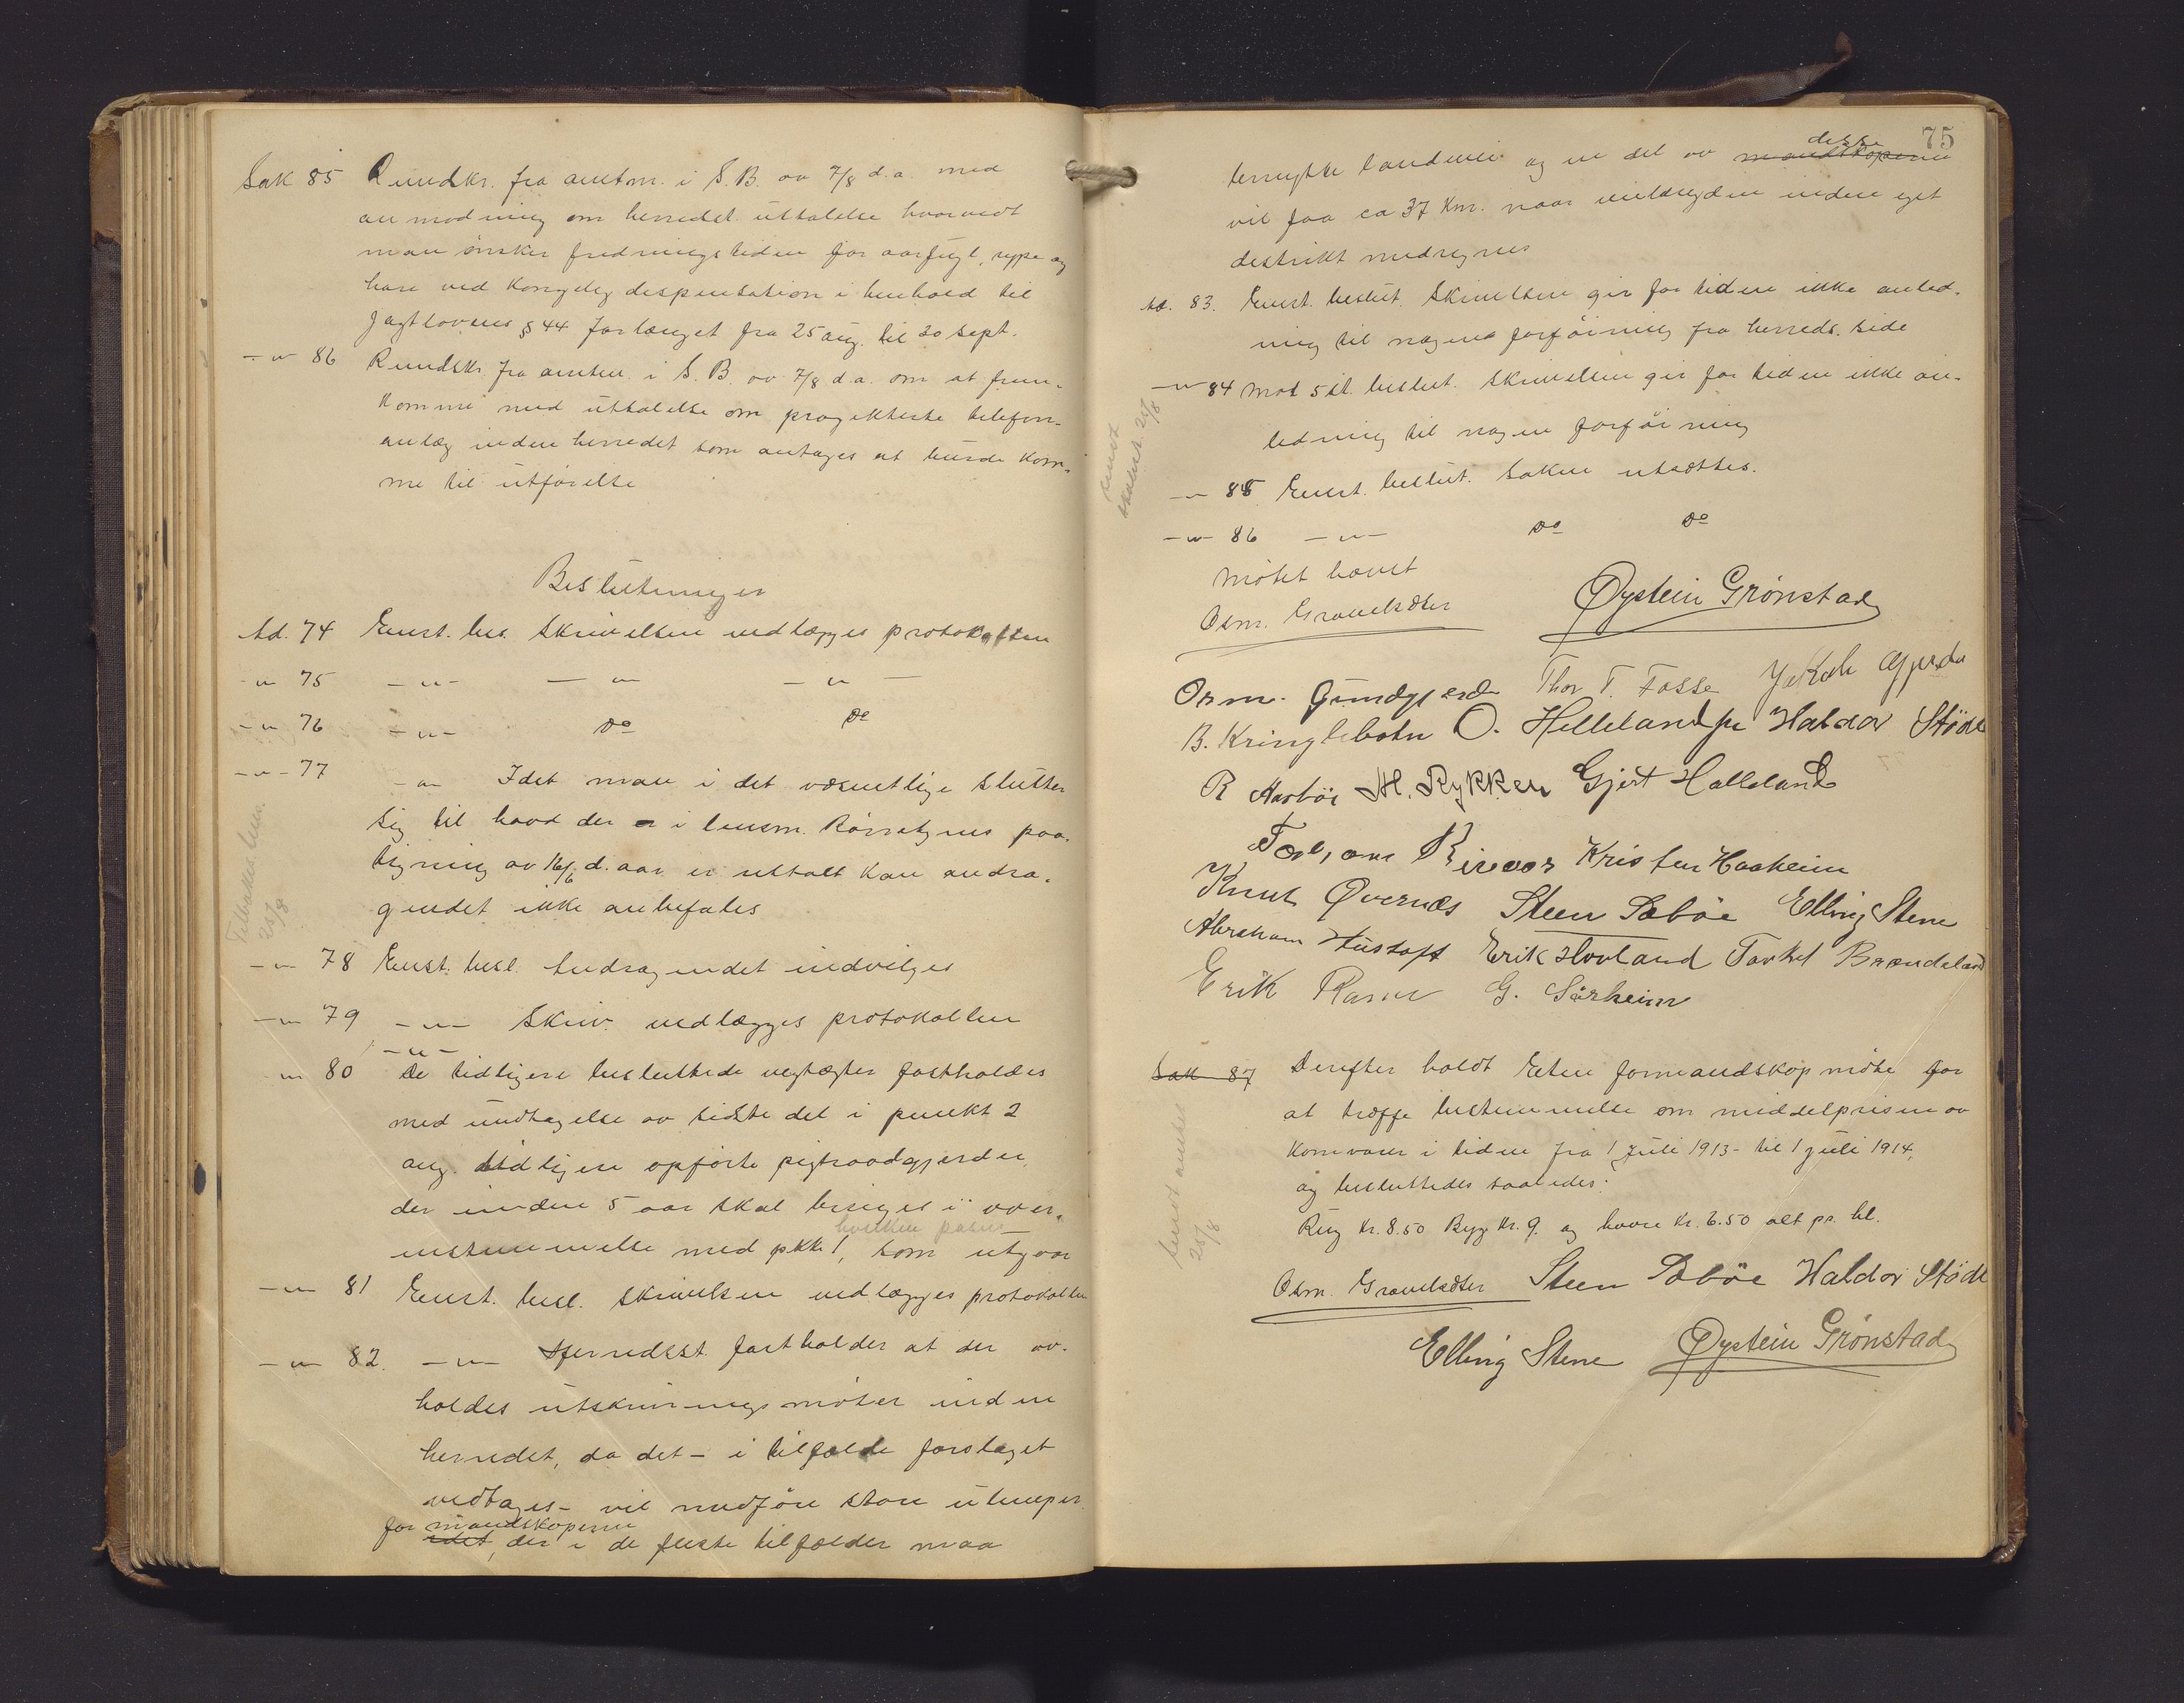 Sak 85 Rundskr. fra amtm. i S. B. av 7/8 d.a. med
anmodning om herredst. uttalelse hvorvidt
man ønsker fredningstiden for aarfugl, rype og
hare ved Kongelig dispensation i henhold til
Jagtlovens § 44 forlænget fra 25 aug. til 20 sept.
—"— 86 Rundskr. fra amtm. i S. B. av 7/8 d.a. om at frem-
komme med uttalelse om projekterte telefon-
anlæg inden herredet som antages at burde kom-
me til utførelse
Beslutninger
Ad. 74 Enst. bes. Skrivelsen vedlægges protokollen
—"— 75 —"— —"— —"—
—"— 76 —"— Do Do
—"— 77 —"— Idet man i det væsentlige slutter
sig til hvad der i lensm. paa-
tegning av 16/6 d. aar er uttalt kan andra-
gendet ikke anbefales
Tilbakes. lensm.
25/8
—"— 78 Enst. besl. Andragendet indvilges
—"— 79 —"— Skriv. vedlægges protokollen
—"—
—"— 80 De tidligere besluttede vegtægter fastholdes
med undtagelse av sidste del i punkt 2
ang. tidligere opførte pigtraadgjerder,
der inden 5 aar skal bringes i over-
hvilken passus
ensstemmelse med pkt 1, som utgaar
—"— 81 Enst. besl. Skrivelsen vedlægges protokollen
—"— 82. —"— Herredsst. fastholder at der av-
holdes utskrivningsmøter inden
herredet, da det – i tilfælde forslaget
vedtages – vil medføre store ulemper
for mandskaperne
, der i de fleste tilfælder maa
75
disse
benytte landevei og en del av mandskaperne
vil faa ca 37 Km. naar veilængden inden eget
distrikt medregnes
Ad. 83. Enst. beslut. Skrivelsen gir for tiden ikke anled-
ning til nogen forføining fra herreds. side
—"— 84 Mot 5 st. beslut. Skrivelsen gir for tiden ikke an-
ledning til nogen forføining
25/8
—"— 85 Enst. beslut. Saken utsættes.
—"— 86 —"— Do Do
Møtet hævet
Osm. Gravelsæter Øystein Grønstad
Osm. Gundgjerde Thor T. Fosse Jakob Gjerde
B. Kringlebotn O. Helleland jr Haldor Støde
R Aarbøe M. Rykken Gjert Halleland
Kristen Haaheim
Knut Øvernæs Steen Sæbøe Elling Stene
Abraham Hustoft Erik Hovland Torkel Brændeland
Erik G. Sørheim
Sak 87 Derefter holdt Etne formandskap møte for
at træffe bestemmelse om middelprisen av
Kornvarer i tiden fra 1 Juli 1913 – til 1 juli 1914,
og besluttedes saaledes:
Rug Kr. 8.50 Byg Kr. 9. og havre Kr. 6.50 alt pr. hl.
Sendt amtet
25/8
Osm. Gravelsæter Steen Sæbøe Haldor Støde
Elling Stene Øystein Grønstad